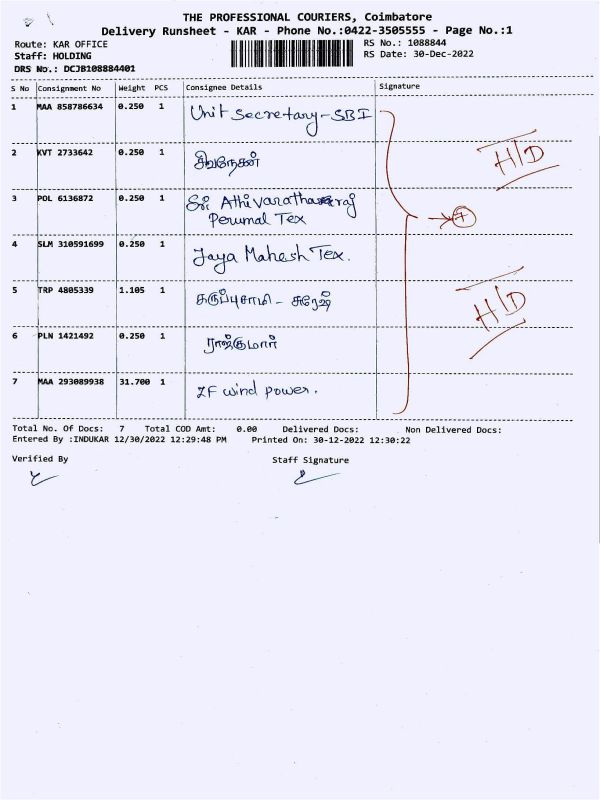 THE PROFESSIONAL COURIERS, Coimbatore
Delivery Runsheet - KAR - Phone No.:0422-3505555 - Page No.:1
Route: KAR OFFICE
RS No.: 1088844
Staff: HOLDING
RS Date: 30-Dec-2022
DRS No.: DCJB108884401
S No Consignment No Weight PCS Consignee Details Signature
1 MAA 858786634 0.250 1 Unit Secretary - SBI
H/D
2 KVT 2733642 0.250 1
3 POL 6136872 0.250 1 Sri Athivaratharaj
Perumal Tex
7
4 SLM 310591699 0.250 1 Jaya Mahesh Tex.
5 TRP 4805339 1.105 1 கருப்புசாமி - சுரேஷ்
H/D
6 PLN 1421492 0.250 1 ராஜ்குமார்
7 MAA 293089938 31.700 1 ZF wind power.
Total No. Of Docs: 7 Total COD Amt: 0.00 Delivered Docs: Non Delivered Docs:
Entered By :INDUKAR 12/30/2022 12:29:48 PM Printed On: 30-12-2022 12:30:22
Verified By Staff Signature